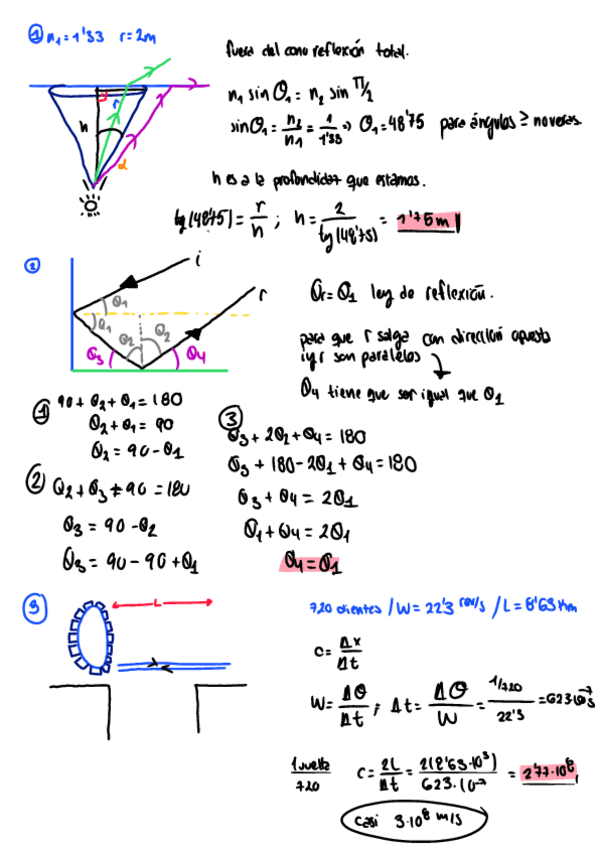 ① n₁ = 1'33 r = 2m
fuera del cono reflexión total.
n₁ sin θ₁ = n₂ sin π/2
sin θ₁ = n₂/n₁ = 1/1'33 ⇒ θ₁ = 48'75 para ángulos ≥ no veras.
r
h
α
h es a la profundidad que estamos.
tg(48'75) = r/h ; h = 2/tg(48'75) = 1'75 m
②
i
r
θ₁
θ₁
θ₂
θ₂
θ₃
θ₄
θr = θ₁ ley de reflexión.
para que r salga con dirección opuesta
i y r son paralelos
θ₄ tiene que ser igual que θ₁
① 90 + θ₂ + θ₁ = 180
θ₂ + θ₁ = 90
θ₂ = 90 - θ₁
② θ₂ + θ₃ + 90 = 180
θ₃ = 90 - θ₂
θ₃ = 90 - 90 + θ₁
③
θ₃ + 2θ₂ + θ₄ = 180
θ₃ + 180 - 2θ₁ + θ₄ = 180
θ₃ + θ₄ = 2θ₁
θ₁ + θ₄ = 2θ₁
θ₄ = θ₁
③
L
720 dientes / W = 22'3 rev/s / L = 8'63 km
c = Δx/Δt
W = Δθ/Δt ; Δt = Δθ/W = 1/720/22'3 = 623·10⁻⁷ s
1 vuelta/720 c = 2L/Δt = 2(8'63·10³)/623·10⁻⁷ = 2'77·10⁸
casi 3·10⁸ m/s